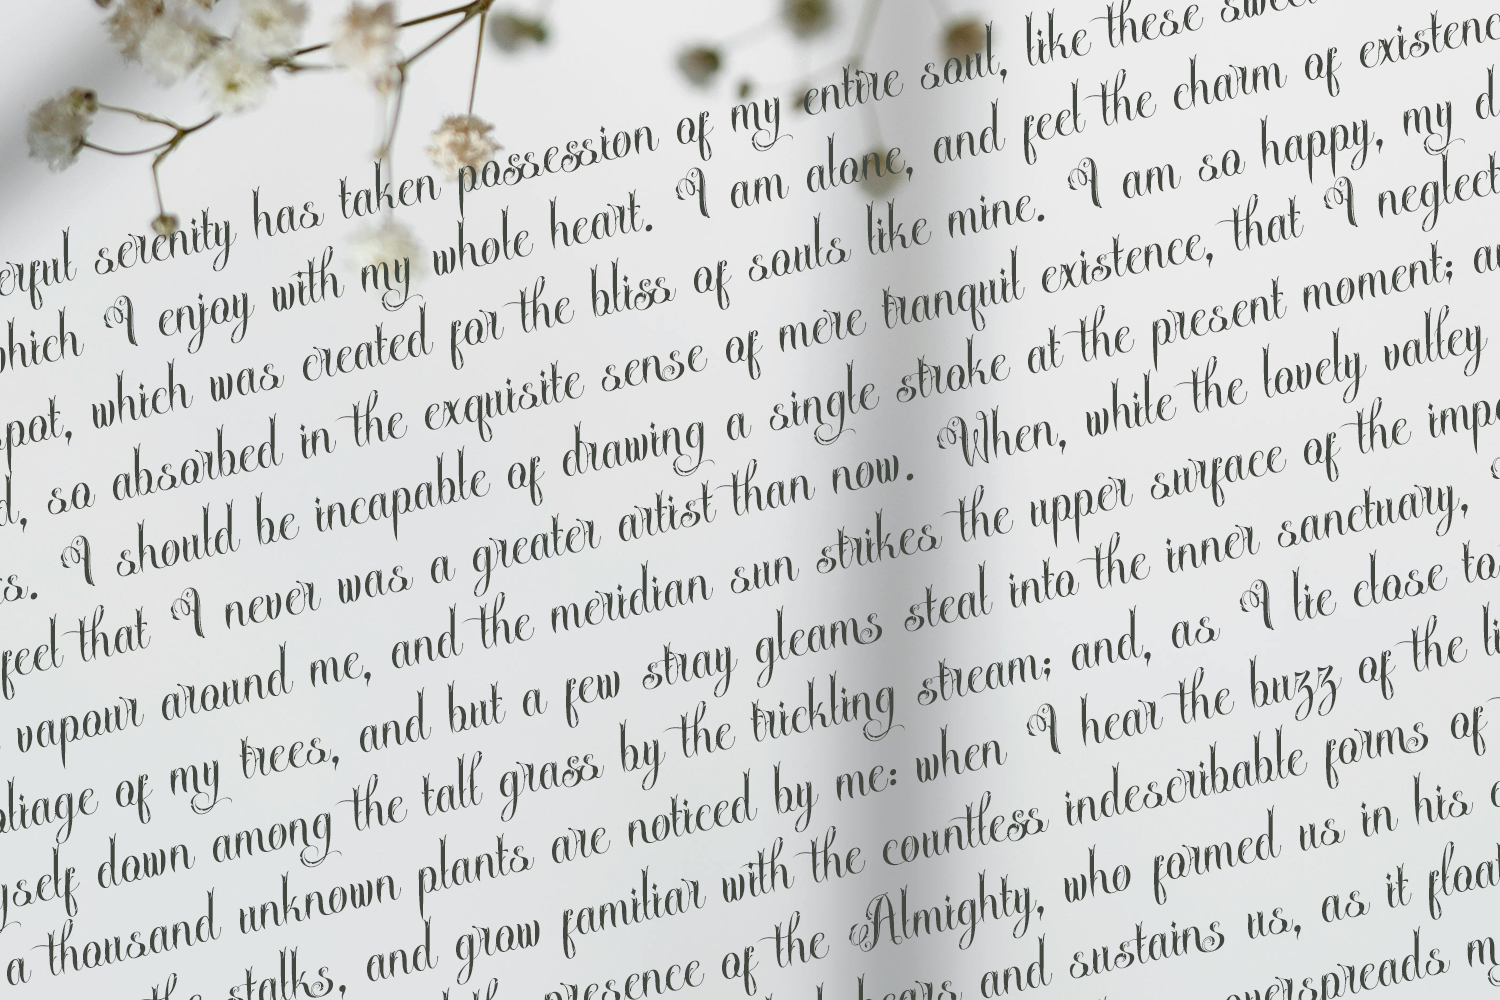 erful serenity has taken possession of my entire soul, like these sweet
hich I enjoy with my whole heart. I am alone, and feel the charm of existenc
spot, which was created for the bliss of souls like mine. I am so happy, my d
d, so absorbed in the exquisite sense of mere tranquil existence, that I neglect
ts. I should be incapable of drawing a single stroke at the present moment; an
feel that I never was a greater artist than now. When, while the lovely valley
vapour around me, and the meridian sun strikes the upper surface of the impe
oliage of my trees, and but a few stray gleams steal into the inner sanctuary,
yself down among the tall grass by the trickling stream; and, as I lie close to
a thousand unknown plants are noticed by me: when I hear the buzz of the li
the stalks, and grow familiar with the countless indescribable forms of
presence of the Almighty, who formed us in his
bears and sustains us, as it float
overspreads m